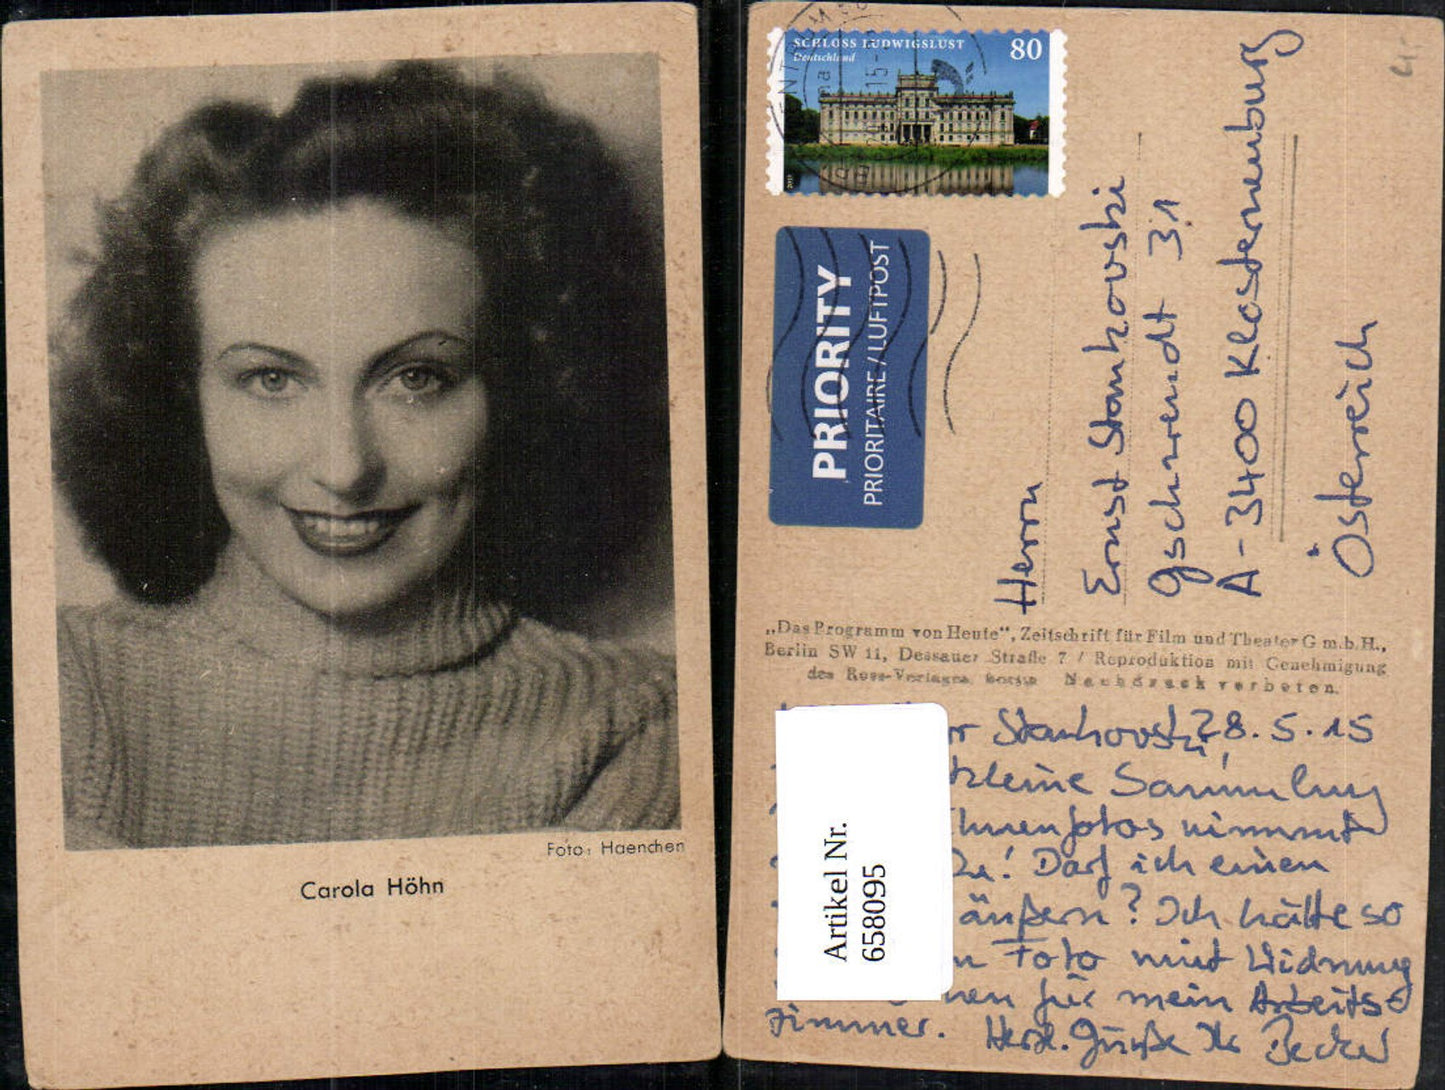 Foto: Haenchen
Carola Höhn
SCHLOSS LUDWIGSLUST
Deutschland
80
PRIORITY
PRIORITAIRE / LUFTPOST
Herrn
Ernst Stankovski
Gschwendt 31
A-3400 Klosterneuburg
Österreich
„Das Programm von Heute“, Zeitschrift für Film und Theater G.m.b.H.,
Berlin SW 11, Dessauer Straße 7 / Reproduktion mit Genehmigung
des Ross-Verlages, Berlin Nachdruck verboten.
Artikel Nr.
658095
Stankovski, 28.5.15
kleine Sammlung
nimmt
zu! Darf ich einen
äußern? Ich hätte so
Foto mit Widmung
für mein Arbeits-
zimmer. Herzl. Grüße Ihr Becker